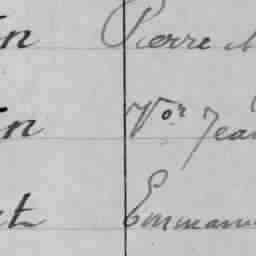 in Pierre
in Vor Jean
et Emmanu